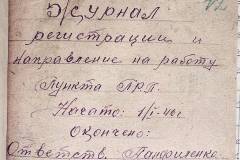 72
Журнал
регистрации и
направление на работу
Пункта ПРП.
Начато: 1/I-46г
Окончено:
Ответств. Панфиленко.